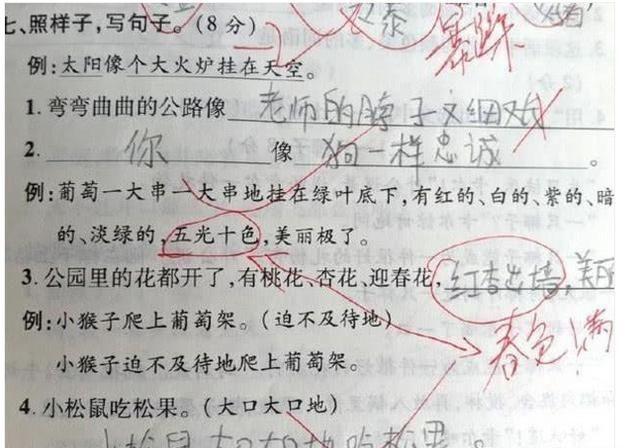 拉泰
七、照样子，写句子。(8分)
-2
例：太阳像个大火炉挂在天空。
1. 弯弯曲曲的公路像 老师的脖子又细又长
2. 你 像 狗一样忠诚 。
例：葡萄一大串一大串地挂在绿叶底下，有红的、白的、紫的、暗
的、淡绿的，五光十色，美丽极了。
3. 公园里的花都开了，有桃花、杏花、迎春花，红杏出墙，美丽
春色满
例：小猴子爬上葡萄架。(迫不及待地)
小猴子迫不及待地爬上葡萄架。
4. 小松鼠吃松果。(大口大口地)
小松鼠大口大口地吃松果